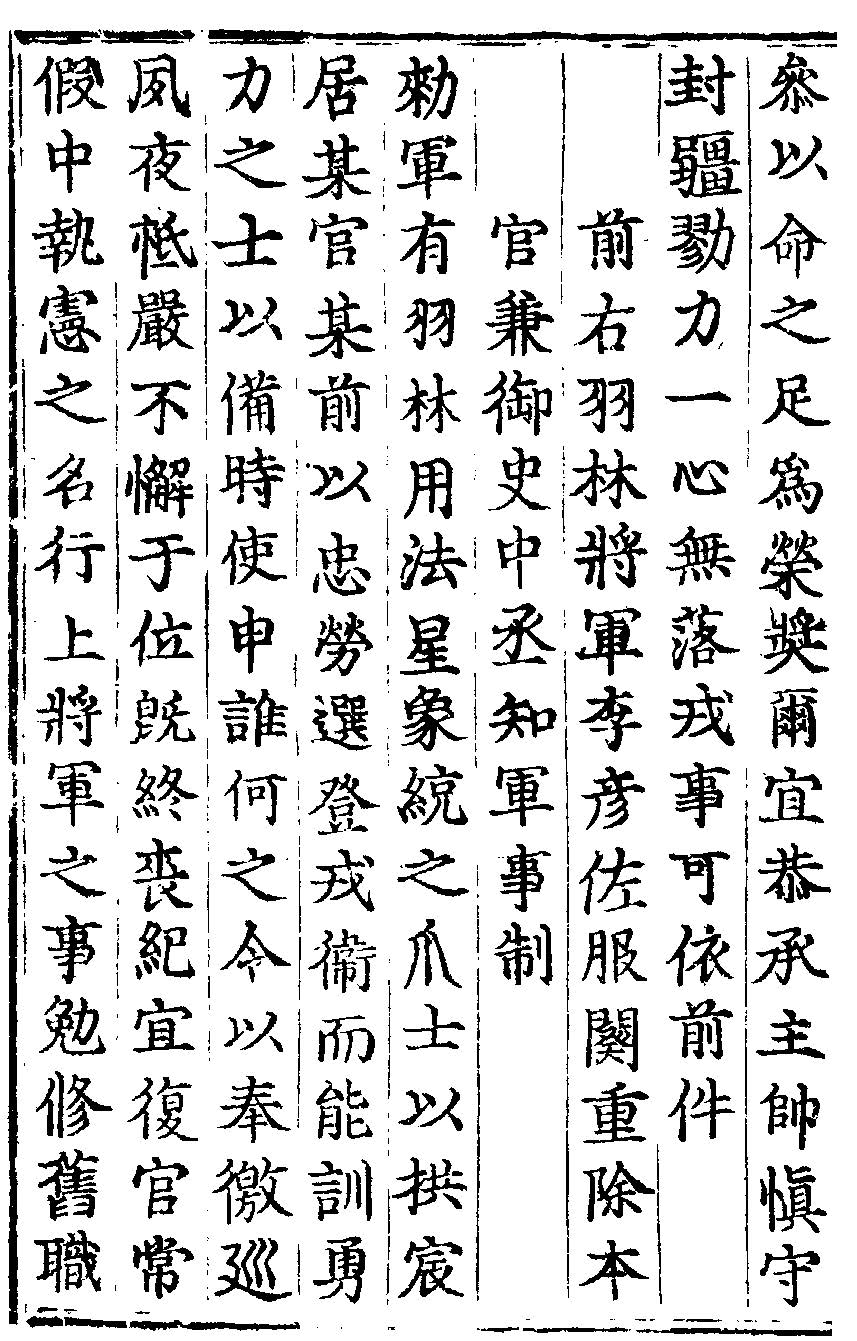 叅以命之足爲榮奬爾宜恭承主帥愼守
封疆勠力一心無落戎事可依前件
前右羽林將軍李彦佐服闋重除本
官兼御史中丞知軍事制
勑軍有羽林用法星象統之爪士以拱宸
居某官某前以忠勞選登戎衛而能訓勇
力之士以備時使申誰何之令以奉徼廵
夙夜祗嚴不懈于位旣終喪紀宜復官常
假中執憲之名行上將軍之事勉修舊職